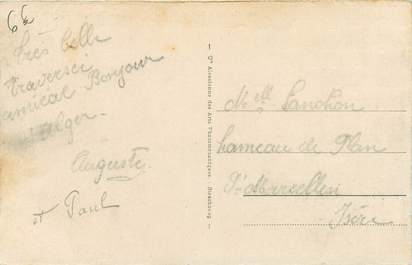 66
Très belle
traversée
amical Bonjour
d'Alger.
Auguste
et Paul
— Cie Alsacienne des Arts Photomécaniques, Strasbourg —
Melle Sanchon
hameau de Plan
St Marcellin
Isère